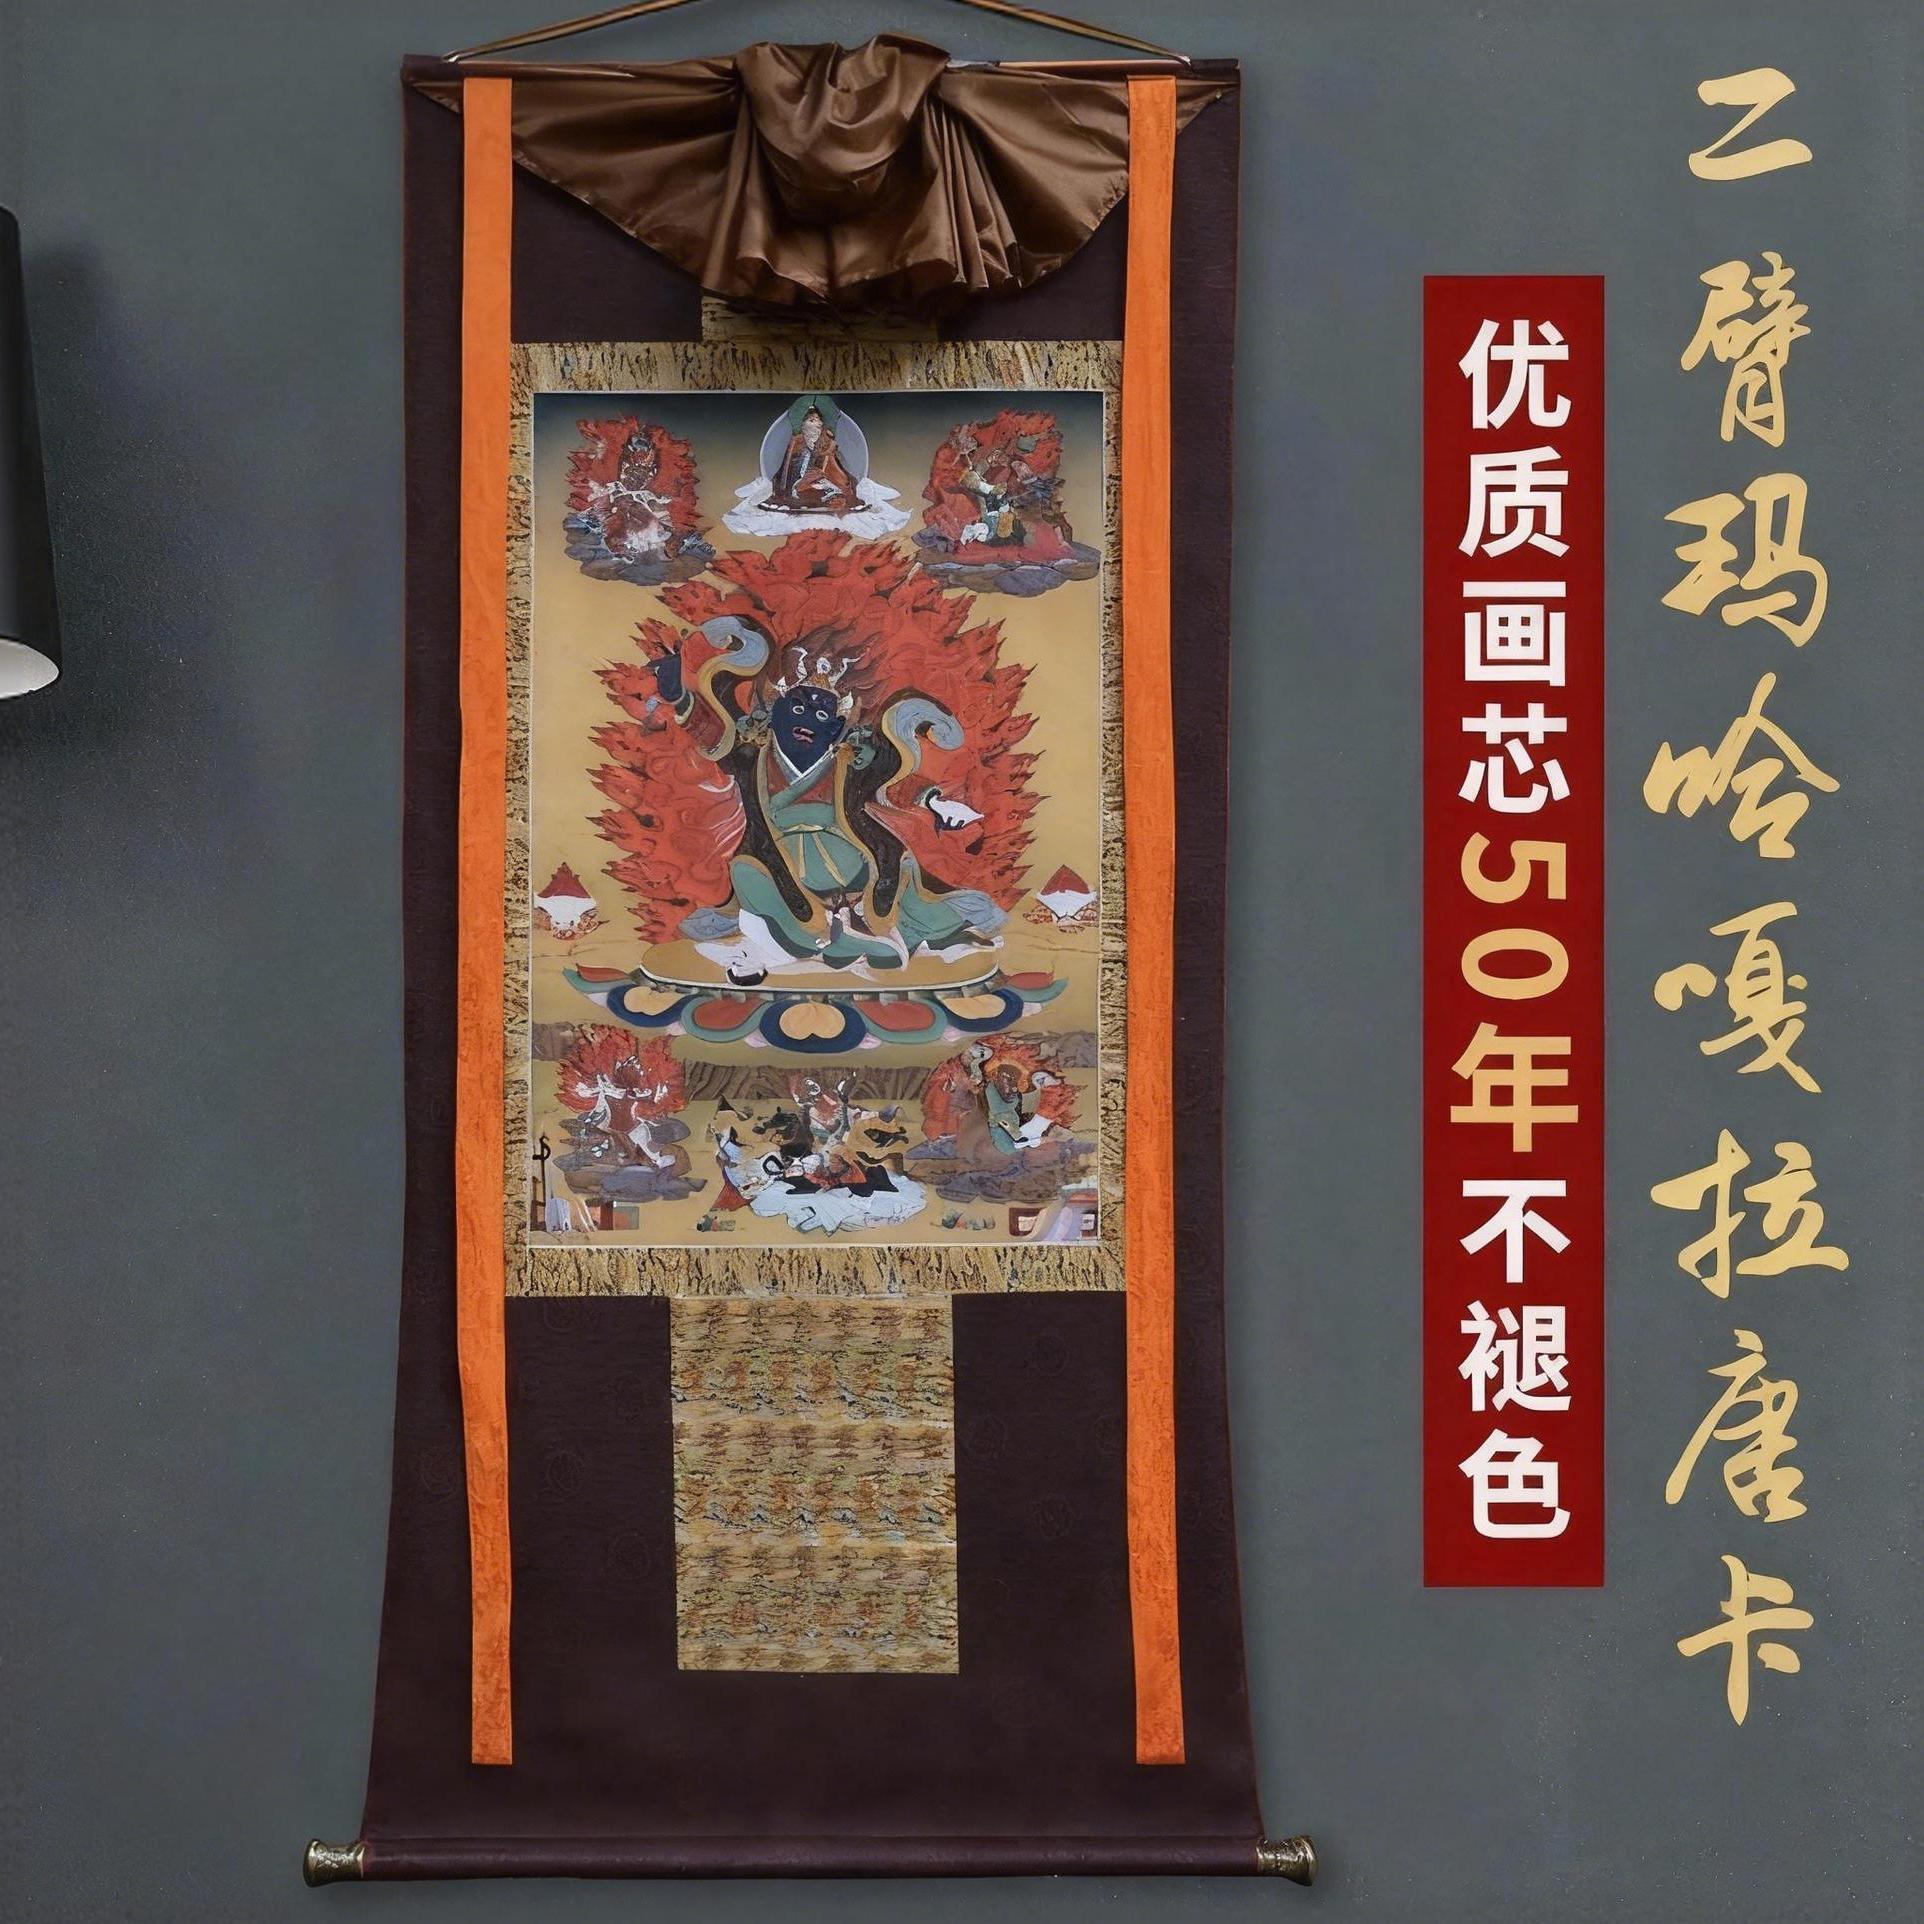 二臂玛哈嘎拉唐卡
优质画芯50年不褪色